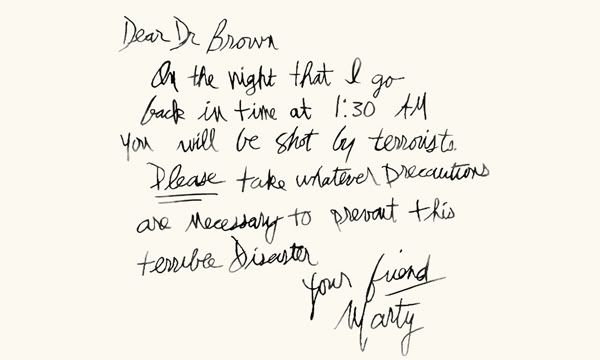 Dear Dr Brown
On the night that I go
back in time at 1:30 AM
you will be shot by terrorists.
Please take whatever precautions
are necessary to prevent this
terrible Disaster
Your friend
Marty